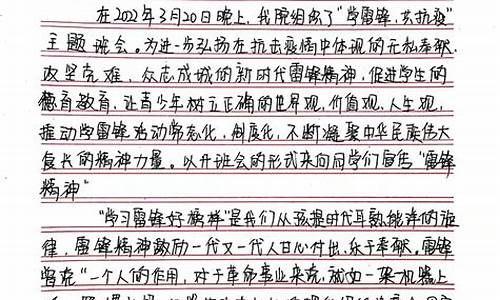 在2022年3月20日晚上，我院组织了“学雷锋，共抗疫”
主题班会。为进一步弘扬在抗击疫情中体现的无私奉献、
攻坚克难、众志成城的新时代雷锋精神，促进学生的
德育教育，让青少年树立正确的世界观，价值观，人生观，
推动学雷锋活动常态化，制度化，不断凝聚中华民族伟大
食长的精神力量。以开班会的形式来向同学们宣传“雷锋
精神”
“学习雷锋好榜样”是我们从孩提时代耳熟能详的旋
律，雷锋精神激励一代又一代人甘心付出，乐于奉献。雷锋
曾说“一个人的作用，对于革命事业来说，就如一架机器上